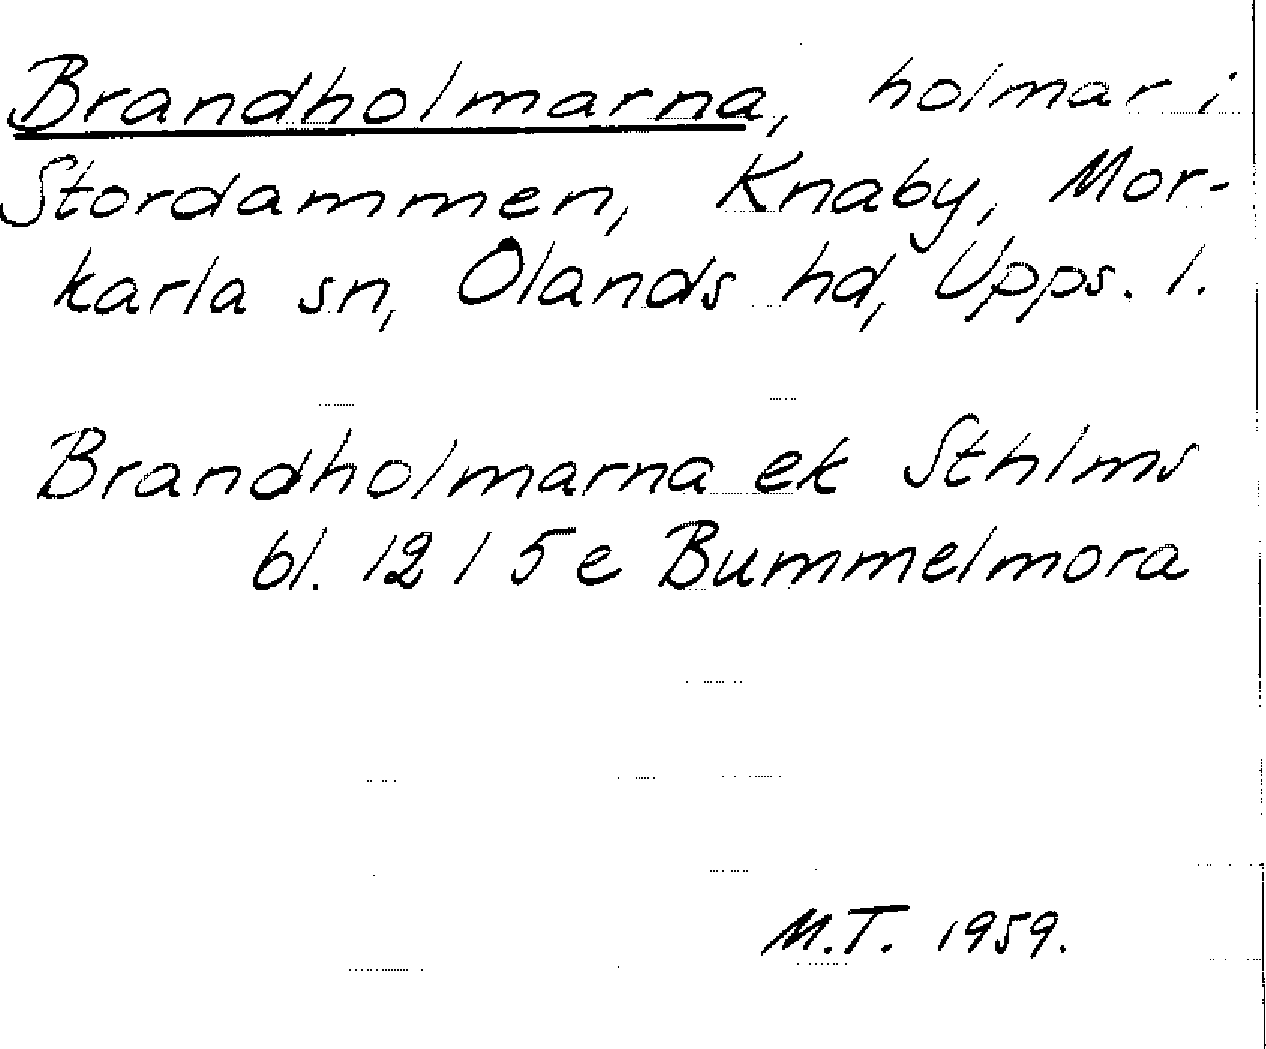 Brandholmarna, holmar i
Stordammen, Knaby, Mor-
karla sn, Olands hd, Upps. l.
Brandholmarna ek Sthlms
bl. 12 I 5 e Bummelmora
M.T. 1959.